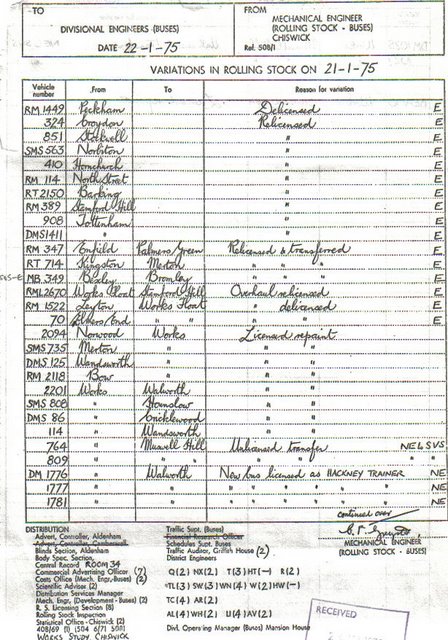 TO
DIVISIONAL ENGINEERS (BUSES)
DATE 22-1-75
FROM
MECHANICAL ENGINEER
(ROLLING STOCK - BUSES)
CHISWICK
Ref. 508/1
VARIATIONS IN ROLLING STOCK ON 21-1-75
Vehicle number From To Reason for variation
RM 1449 Peckham Delicensed E
324 Croydon Relicensed E
851 Stockwell " E
SMS 563 Norbiton " E
410 Hornchurch " E
RM 114 North Street " E
RT 2150 Barking " E
RM 389 Stamford Hill " E
908 Tottenham " E
DMS 1411 " " E
RM 347 Enfield Palmers Green Relicensed & transferred E
RT 714 Kingston Merton " " " E
MB 349 Bexley Bromley " " " E
RML 2670 Works Float Stamford Hill Overhaul relicensed E
RM 1522 Leyton Works Float " delicensed E
70 Elmers End " " " " E
2094 Norwood Works Licensed repaint
SMS 735 Merton " " "
DMS 125 Wandsworth " " "
RM 2118 Bow " " "
2201 Works Walworth " "
SMS 808 " Hounslow " "
DMS 86 " Cricklewood " "
114 " Wandsworth " "
764 " Muswell Hill Unlicensed transfer NELSVS
809 " " " " " " "
DM 1776 " Walworth New bus licensed as HACKNEY TRAINER NE
1777 " " " " " " " " NE
1781 " " " " " " " " NE
continued over
MECHANICAL ENGINEER
(ROLLING STOCK - BUSES)
DISTRIBUTION
Advert. Controller, Aldenham
Advert. Controller, Camberwell
Blinds Section, Aldenham
Body Spec. Section,
Central Record ROOM 34
Commercial Advertising Officer (7)
Costs Office (Mech. Engr.-Buses) (2)
Scientific Adviser (2)
Distribution Services Manager
Mech. Engr. (Development - Buses) (2)
R. S. Licensing Section (8)
Rolling Stock Inspection
Statistical Office - Chiswick (2)
408/69 (1) (504 6/7) 508/1
WORKS STUDY CHISWICK
Traffic Supt. (Buses)
Financial Research Officer
Schedules Supt. Buses
Traffic Auditor, Griffith House (2)
District Engineers
Q(2) NX(2) T(3) HT(-) R(2)
TL(3) SW(3) WN(4) W(2) HW(-)
TC(4) AR(2)
AL(4) WH(2) U(4) AV(2)
Divl. Operating Manager (Buses) Mansion House
RECEIVED